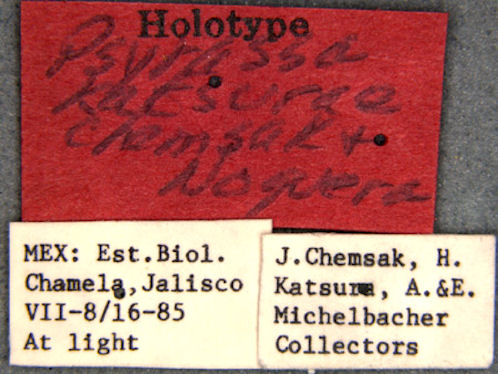 Holotype
Psyrassa
katsurae
Chemsak +
Noguera
MEX: Est.Biol.
Chamela,Jalisco
VII-8/16-85
At light
J.Chemsak, H.
Katsura, A.&E.
Michelbacher
Collectors